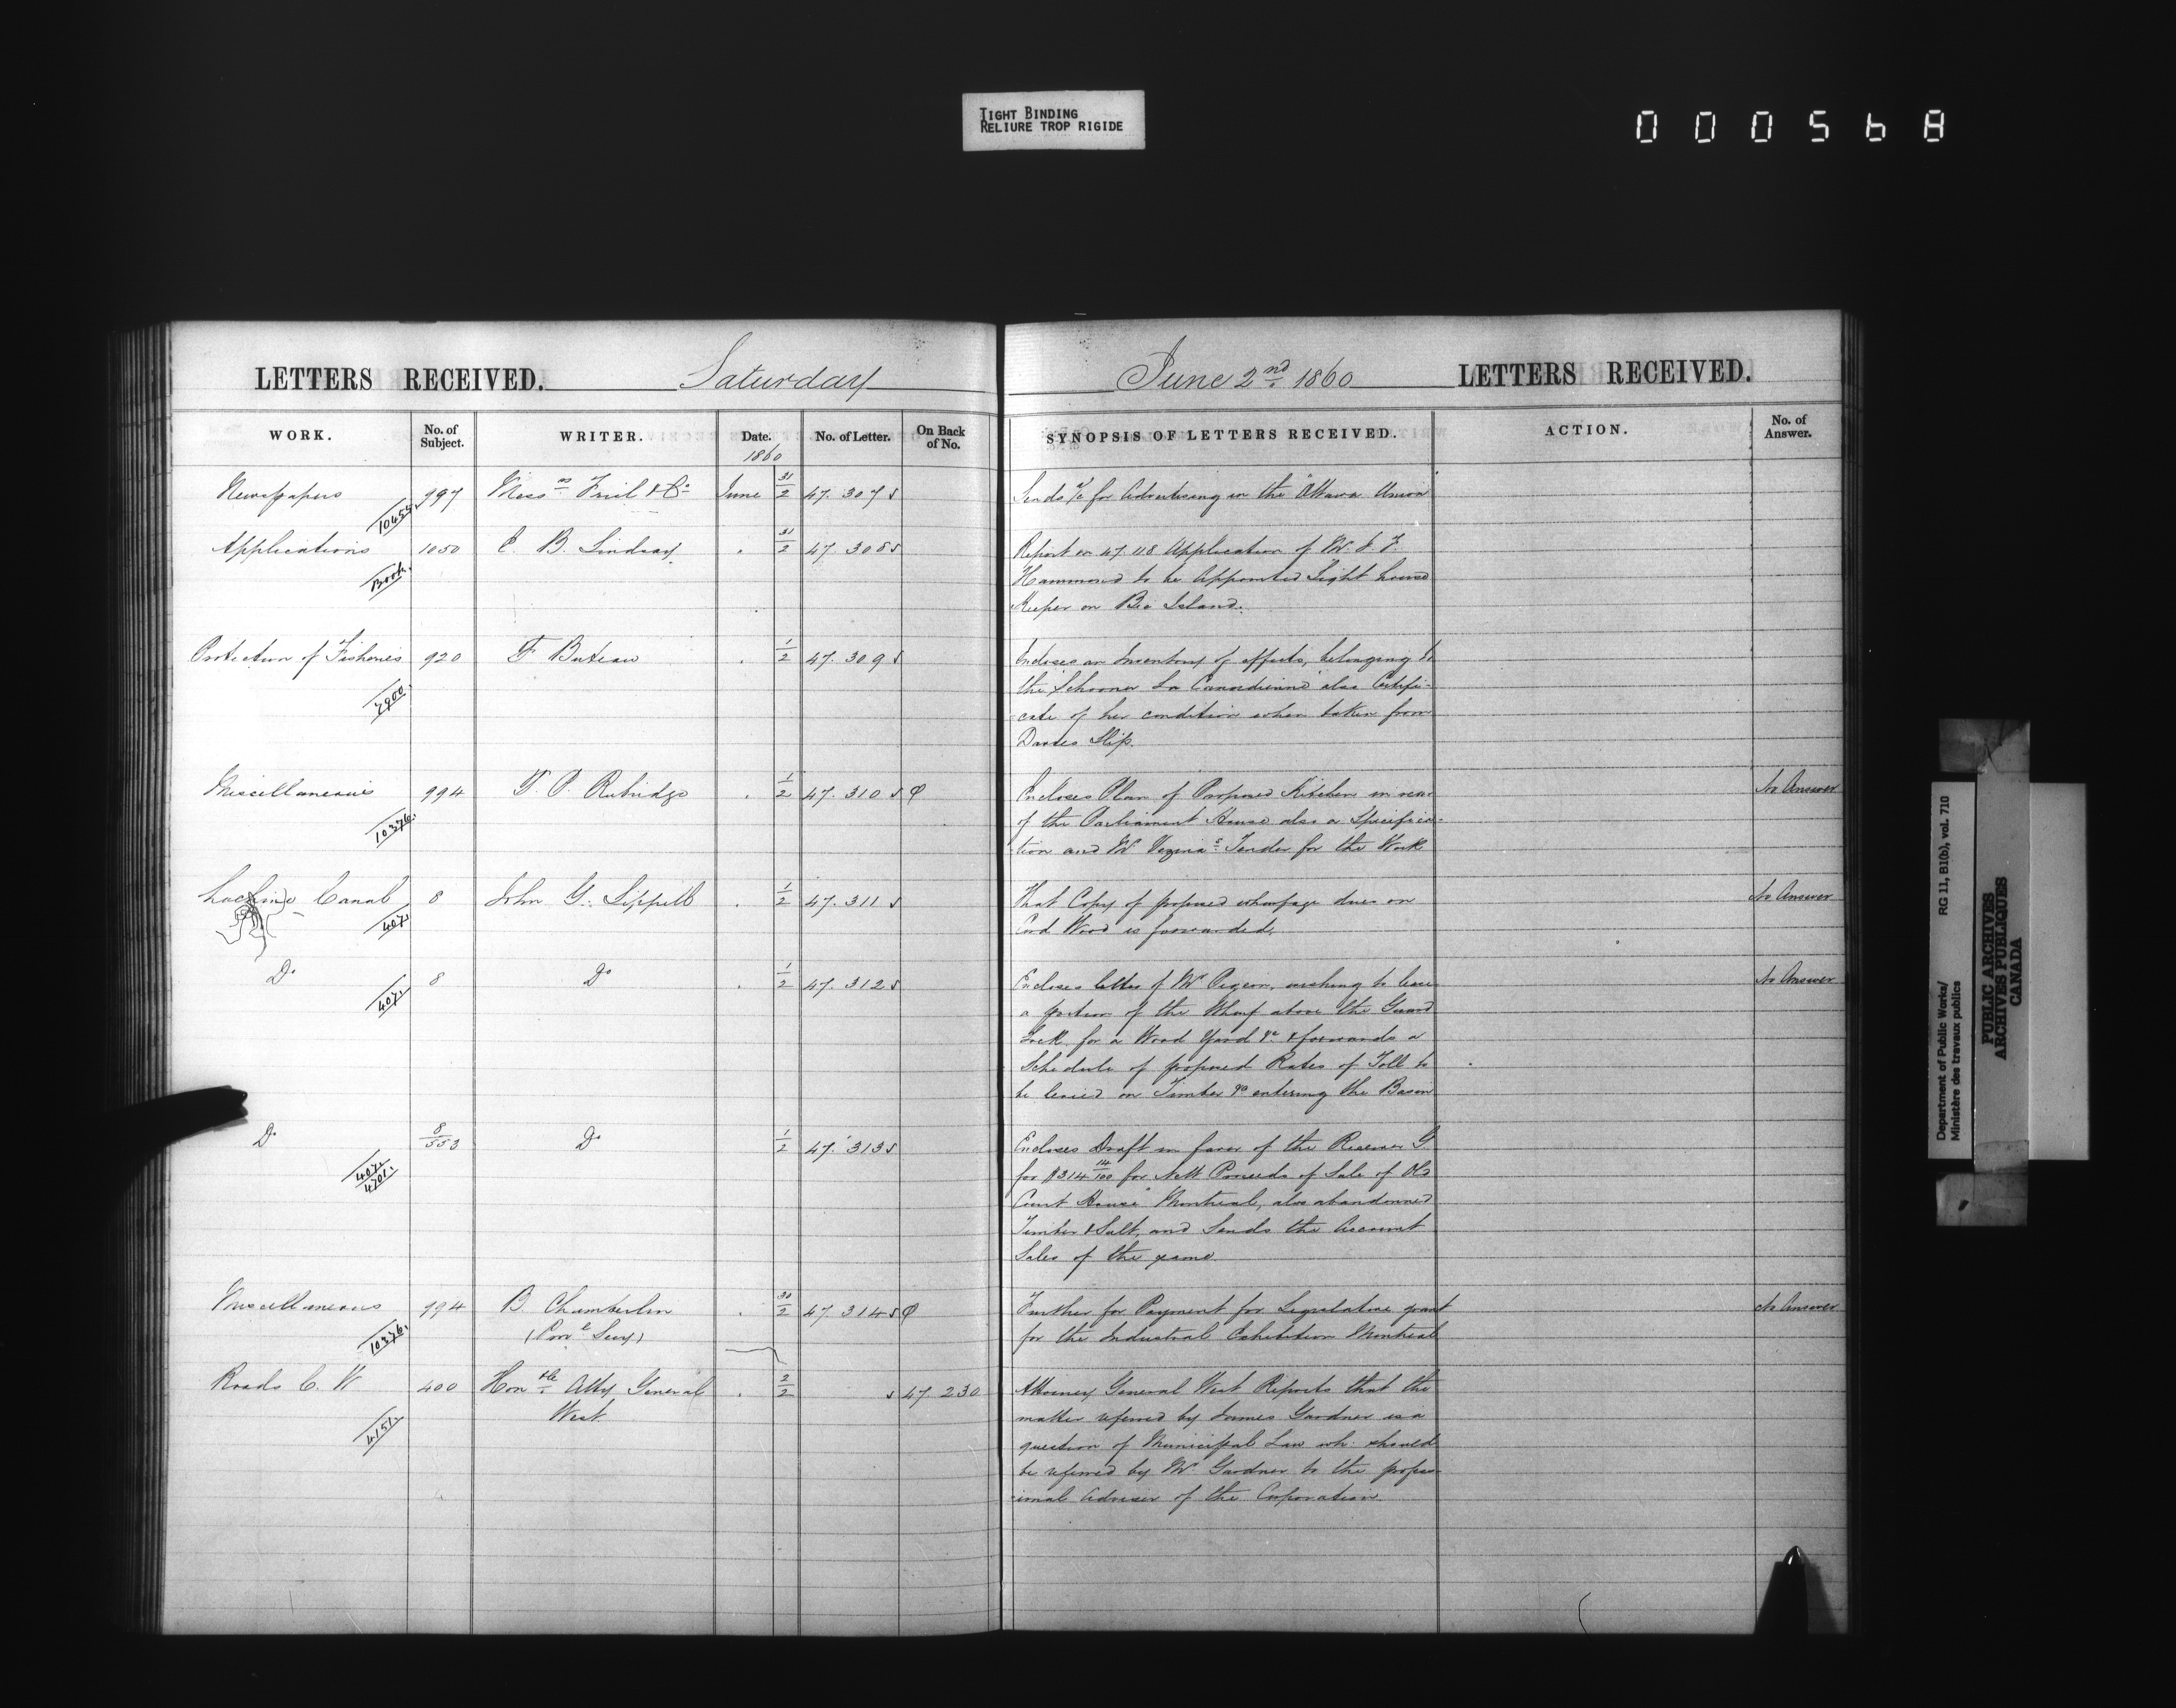 TIGHT BINDING
RELIURE TROP RIGIDE
000568
LETTERS RECEIVED. Saturday June 2nd 1860 LETTERS RECEIVED.
WORK. No. of Subject. WRITER. Date. No. of Letter. On Back of No. SYNOPSIS OF LETTERS RECEIVED. ACTION. No. of Answer.
1860
Newspapers 997 Messrs Friel & Co June 31/2 47.307 Sends a/c for Advertising in the Ottawa Union
10455
Applications 1050 E. B. Lindsay 31/2 47.308 Report on 47.118 Application of Mr. J. F.
Book. Hammond to be Appointed Light house
Keeper on Bic Island.
Protection of Fisheries 920 F Buteau 1/2 47.309 Encloses an Inventory of effects, belonging to
the Schooner La Canadienne also Certifi-
7900. cate of her condition when taken from
Davies Slip.
Miscellaneous 994 F. P. Rubidge 1/2 47.310 Encloses Plan of Proposed Kitchen in rear
10376. of the Parliament House also a Specifica-
tion and Mr Vezina's Tender for the Work No Answer
Lachine Canal 8 John G. Sippell 1/2 47.311 That Copy of proposed wharfage dues on No Answer
407. Cord Wood is forwarded.
Do 8 Do 1/2 47.312 Encloses letter of Mr Pigeon, wishing to lease No Answer
407. a portion of the Wharf above the Guard
Lock, for a Wood Yard &c & forwards a
Schedule of proposed Rates of Toll to
be levied on Timber &c entering the Basin
Do 8/553 Do 1/2 47.313 Encloses Draft in favor of the Receiver G
407. for $314 14/100 for Nett Proceeds of Sale of Old
4701. Court House Montreal, also abandonned
Timber & Salt, and Sends the Account
Sales of the same.
Miscellaneous 994 B. Chamberlin 30/2 47.314 Further for Payment for Legislative grant No Answer
10376. for the Industrial Exhibition Montreal
Roads C. W 400 Honble Atty General 2/2 47.230 Attorney General West Reports that the
West matter referred by James Gardner is a
4151. question of Municipal Law wh. should
be referred by Mr Gardner to the profess-
ional Adviser of the Corporation.
Department of Public Works/ RG 11, B1(b), vol. 710
Ministère des travaux publics
PUBLIC ARCHIVES
ARCHIVES PUBLIQUES
CANADA